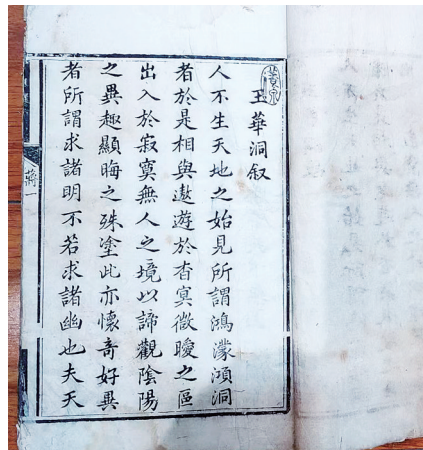 玉華洞叙
人不生天地之始見所謂鴻濛澒洞
者於是相與遨遊於杳冥微曖之區
出入於寂寞無人之境以諦觀陰陽
之異趣顯晦之殊塗此亦懷奇好異
者所謂求諸明不若求諸幽也夫天
蔣一